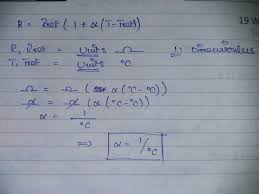 R = Rref (1 + α(T-Tref)
19 W
R, Rref = units Ω 1: dimensionless
T, Tref = units °C
Ω = Ω ( α(°C-°C)
Ω = Ω (α(°C-°C)
α = 1/°C
⇒ α = 1/°C